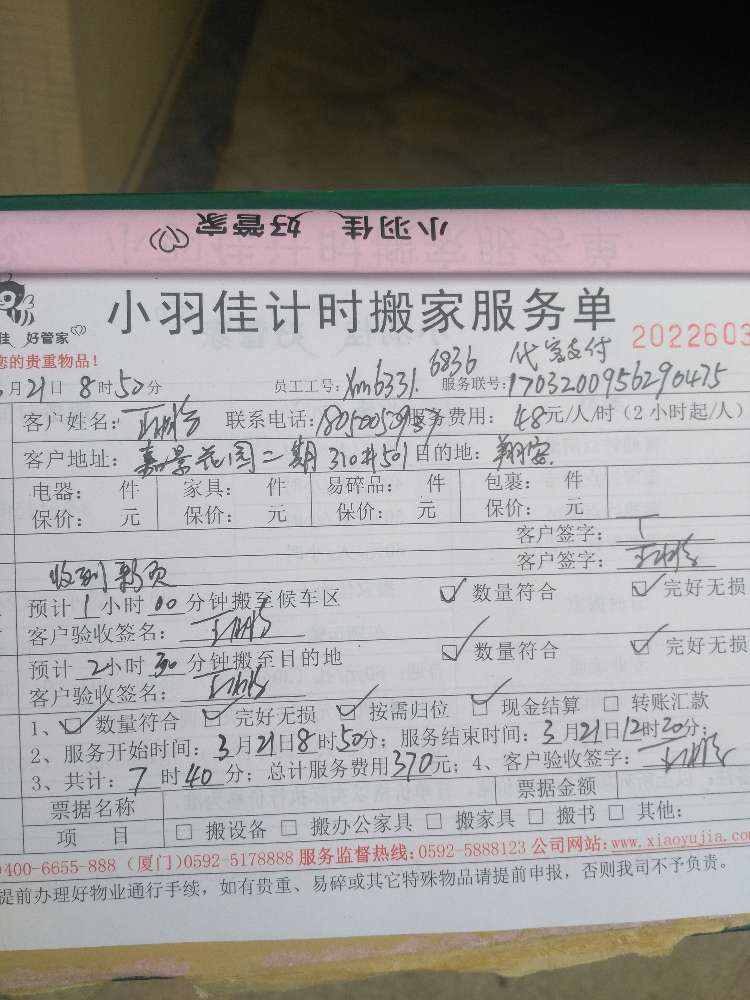 小羽佳 好管家
小羽佳计时搬家服务单
佳 好管家
2022603
您的贵重物品！
6836 代客支付
3月21日 8时50分 员工工号：Xm6331. 服务联号：1703200956290475
客户姓名： 联系电话： 服务费用：48元/人/时（2小时起/人）
客户地址：嘉景花园二期310#501 目的地：翔安
电器： 件 家具： 件 易碎品： 件 包裹： 件
保价： 元 保价： 元 保价： 元 保价： 元
客户签字：
收到款项 客户签字：
预计1小时00分钟搬至候车区 ☑ 数量符合 ☑ 完好无损
客户验收签名：
预计2小时30分钟搬至目的地 ☑ 数量符合 ☑ 完好无损
客户验收签名：
1、☑ 数量符合 ☑ 完好无损 ☑ 按需归位 ☑ 现金结算 □ 转账汇款
2、服务开始时间：3月21日8时50分；服务结束时间：3月21日12时20分；
3、共计：7时40分；总计服务费用370元；4、客户验收签字：
票据名称 票据金额
项 目 □ 搬设备 □ 搬办公家具 □ 搬家具 □ 搬书 □ 其他：
400-6655-888（厦门）0592-5178888 服务监督热线：0592-5888123 公司网站：www.xiaoyujia.com
提前办理好物业通行手续，如有贵重、易碎或其它特殊物品请提前申报，否则我司不予负责。